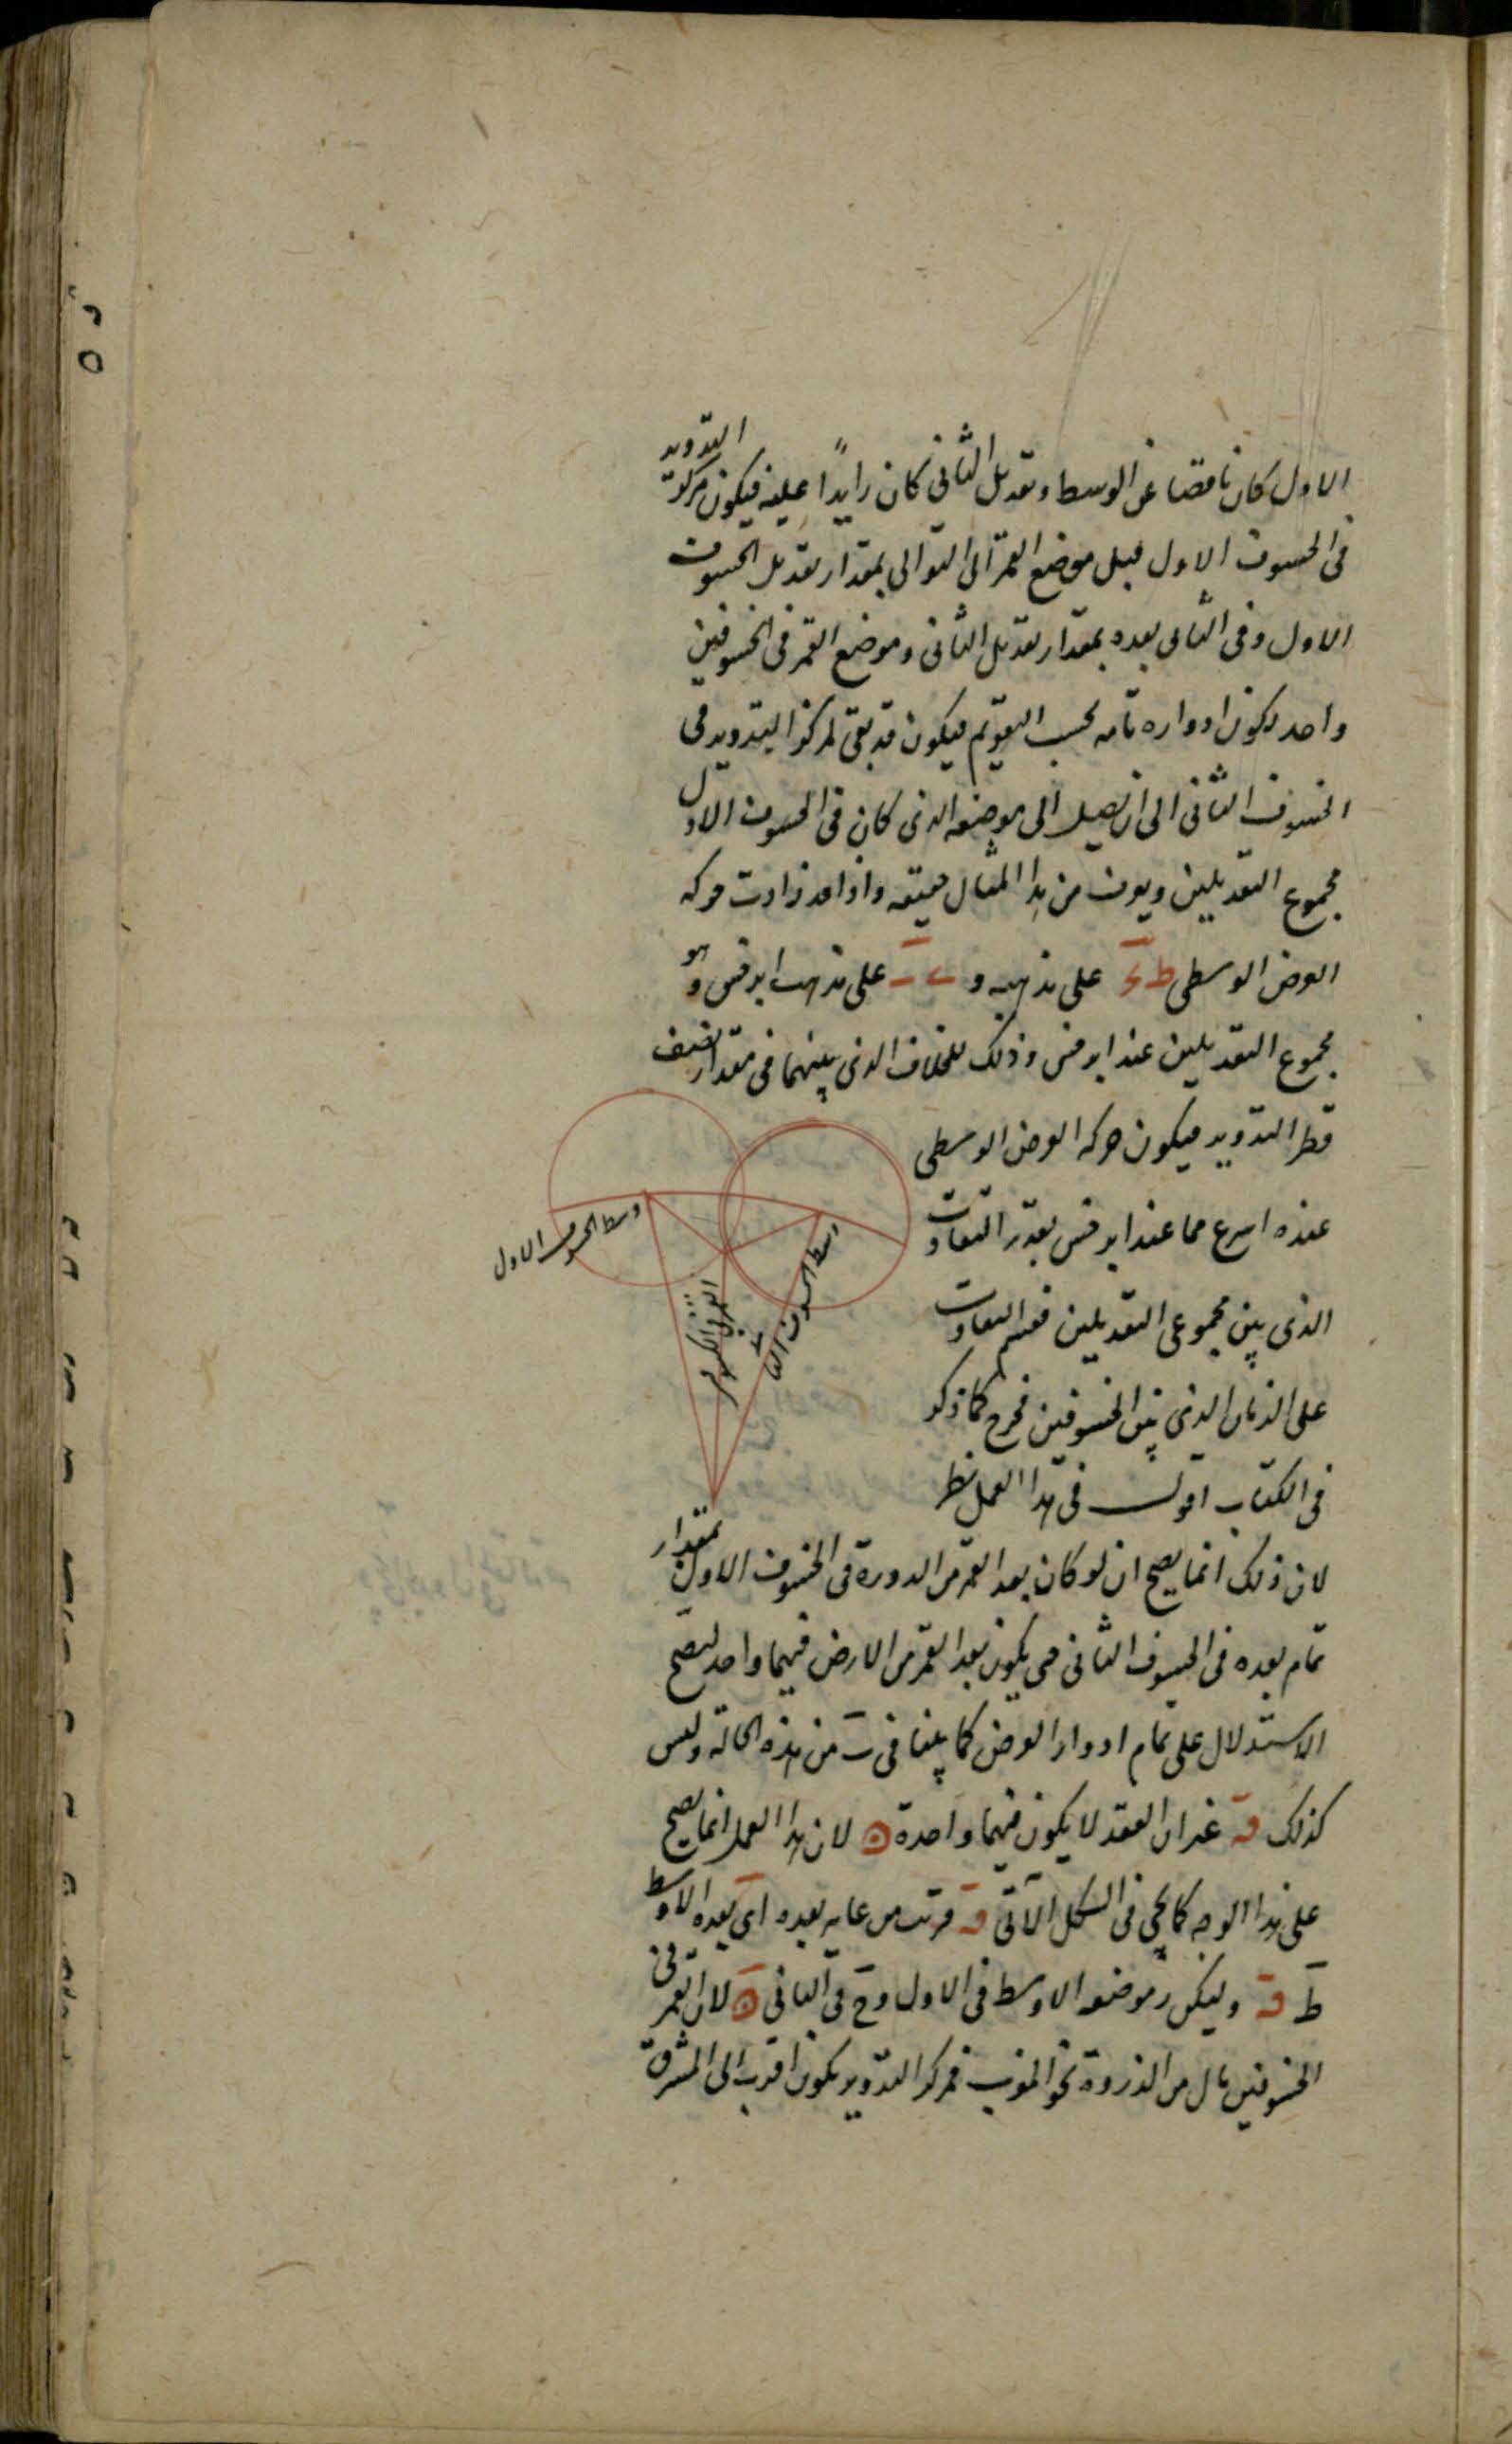 الاول كان ناقصا عن الوسط وتعديل الثانى كان زايداً عليه فيكون مركز التدوير
فى الخسوف الاول قبل موضع القمر الى التوالى بمقدار تعديل الخسوف
الاول وفى الثانى بعده بمقدار تعديل الثانى وموضع القمر فى الخسوفين
واحد لكون ادواره تامه بحسب التقويم فيكون قد بقى لمركز التدوير فى
الخسوف الثانى الى ان يصل الى موضعه الذى كان فى الخسوف الاول
مجموع التعديلين ويعرف من هذا المثال حقيقه واذا قد زادت حركه
العرض الوسطى على مذهبه و على مذهب ابرخس وهو
مجموع التعديلين عند ابرخس وذلك للخلاف الذى بينهما فى مقدار نصف
قطر التدوير فيكون حركه العرض الوسطى
عنده اسرع مما عند ابرخس بقدر التفاوت
الذى بين مجموعى التعديلين فقسم التفاوت
على الزمان الذى بين الخسوفين فخرج كما ذكر
فى الكتاب اقول فى هذا العمل نظر
وسط الخسوف الاول
وسط الخسوف الثانى
لان ذلك انما يصح ان لو كان بعد القمر من الدورة فى الخسوف الاول بمقدار
تمام بعده فى الخسوف الثانى حتى يكون بعد القمر من الارض فيهما واحد ليصح
الاستدلال على تمام ادوار العرض كما بينا فى ت من هذه الحالة وليس
كذلك قه غير ان العقد لا يكون فيهما واحدة لان هذا العمل انما يصح
على هذا الوجه كما يجى فى الشكل الآتى قه قربت من غاية بعده اى بعده الاوسط
ط قه وليكن ر موضعه الاوسط فى الاول وح فى الثانى لان القمر فى
الخسوفين مال من الذروة نحو المغرب فمركز التدوير يكون اقرب الى المشرق